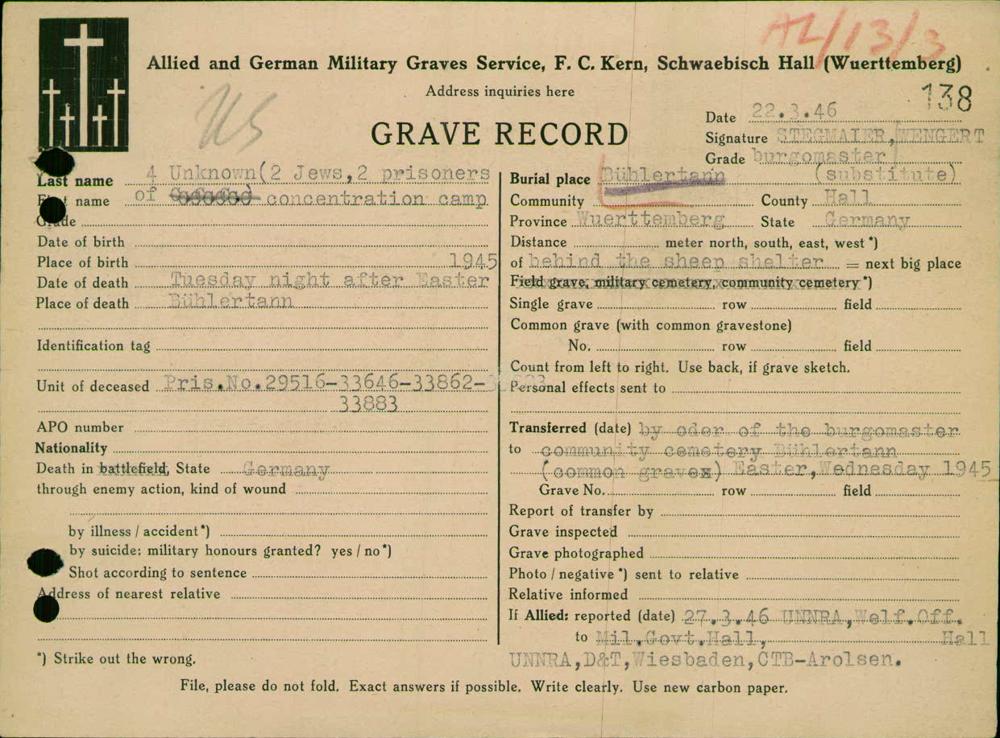 AL/13/3
Allied and German Military Graves Service, F. C. Kern, Schwaebisch Hall (Wuerttemberg)
Address inquiries here
138
US
GRAVE RECORD
Date 22.3.46
Signature STEGMAIER, WENGERT
Grade burgomaster
(substitute)
Last name 4 Unknown(2 Jews,2 prisoners
First name of concentration camp
Grade
Date of birth
Place of birth 1945
Date of death Tuesday night after Easter
Place of death Bühlertann
Identification tag
Unit of deceased Pris.No.29516-33646-33862-
33883
APO number
Nationality
Death in battlefield, State Germany
through enemy action, kind of wound
by illness / accident*)
by suicide: military honours granted? yes / no*)
Shot according to sentence
Address of nearest relative
*) Strike out the wrong.
Burial place Bühlertann
Community County Hall
Province Wuerttemberg State Germany
Distance meter north, south, east, west*)
of behind the sheep shelter = next big place
Field grave, military cemetery, community cemetery*)
Single grave row field
Common grave (with common gravestone)
No. row field
Count from left to right. Use back, if grave sketch.
Personal effects sent to
Transferred (date) by oder of the burgomaster
to community cemetery Bühlertann
(common gravex) Easter, Wednesday 1945
Grave No. row field
Report of transfer by
Grave inspected
Grave photographed
Photo / negative*) sent to relative
Relative informed
If Allied: reported (date) 27.3.46 UNNRA, Welf.Off.
to Mil.Govt.Hall, Hall
UNNRA,D&T,Wiesbaden,CTB-Arolsen.
File, please do not fold. Exact answers if possible. Write clearly. Use new carbon paper.